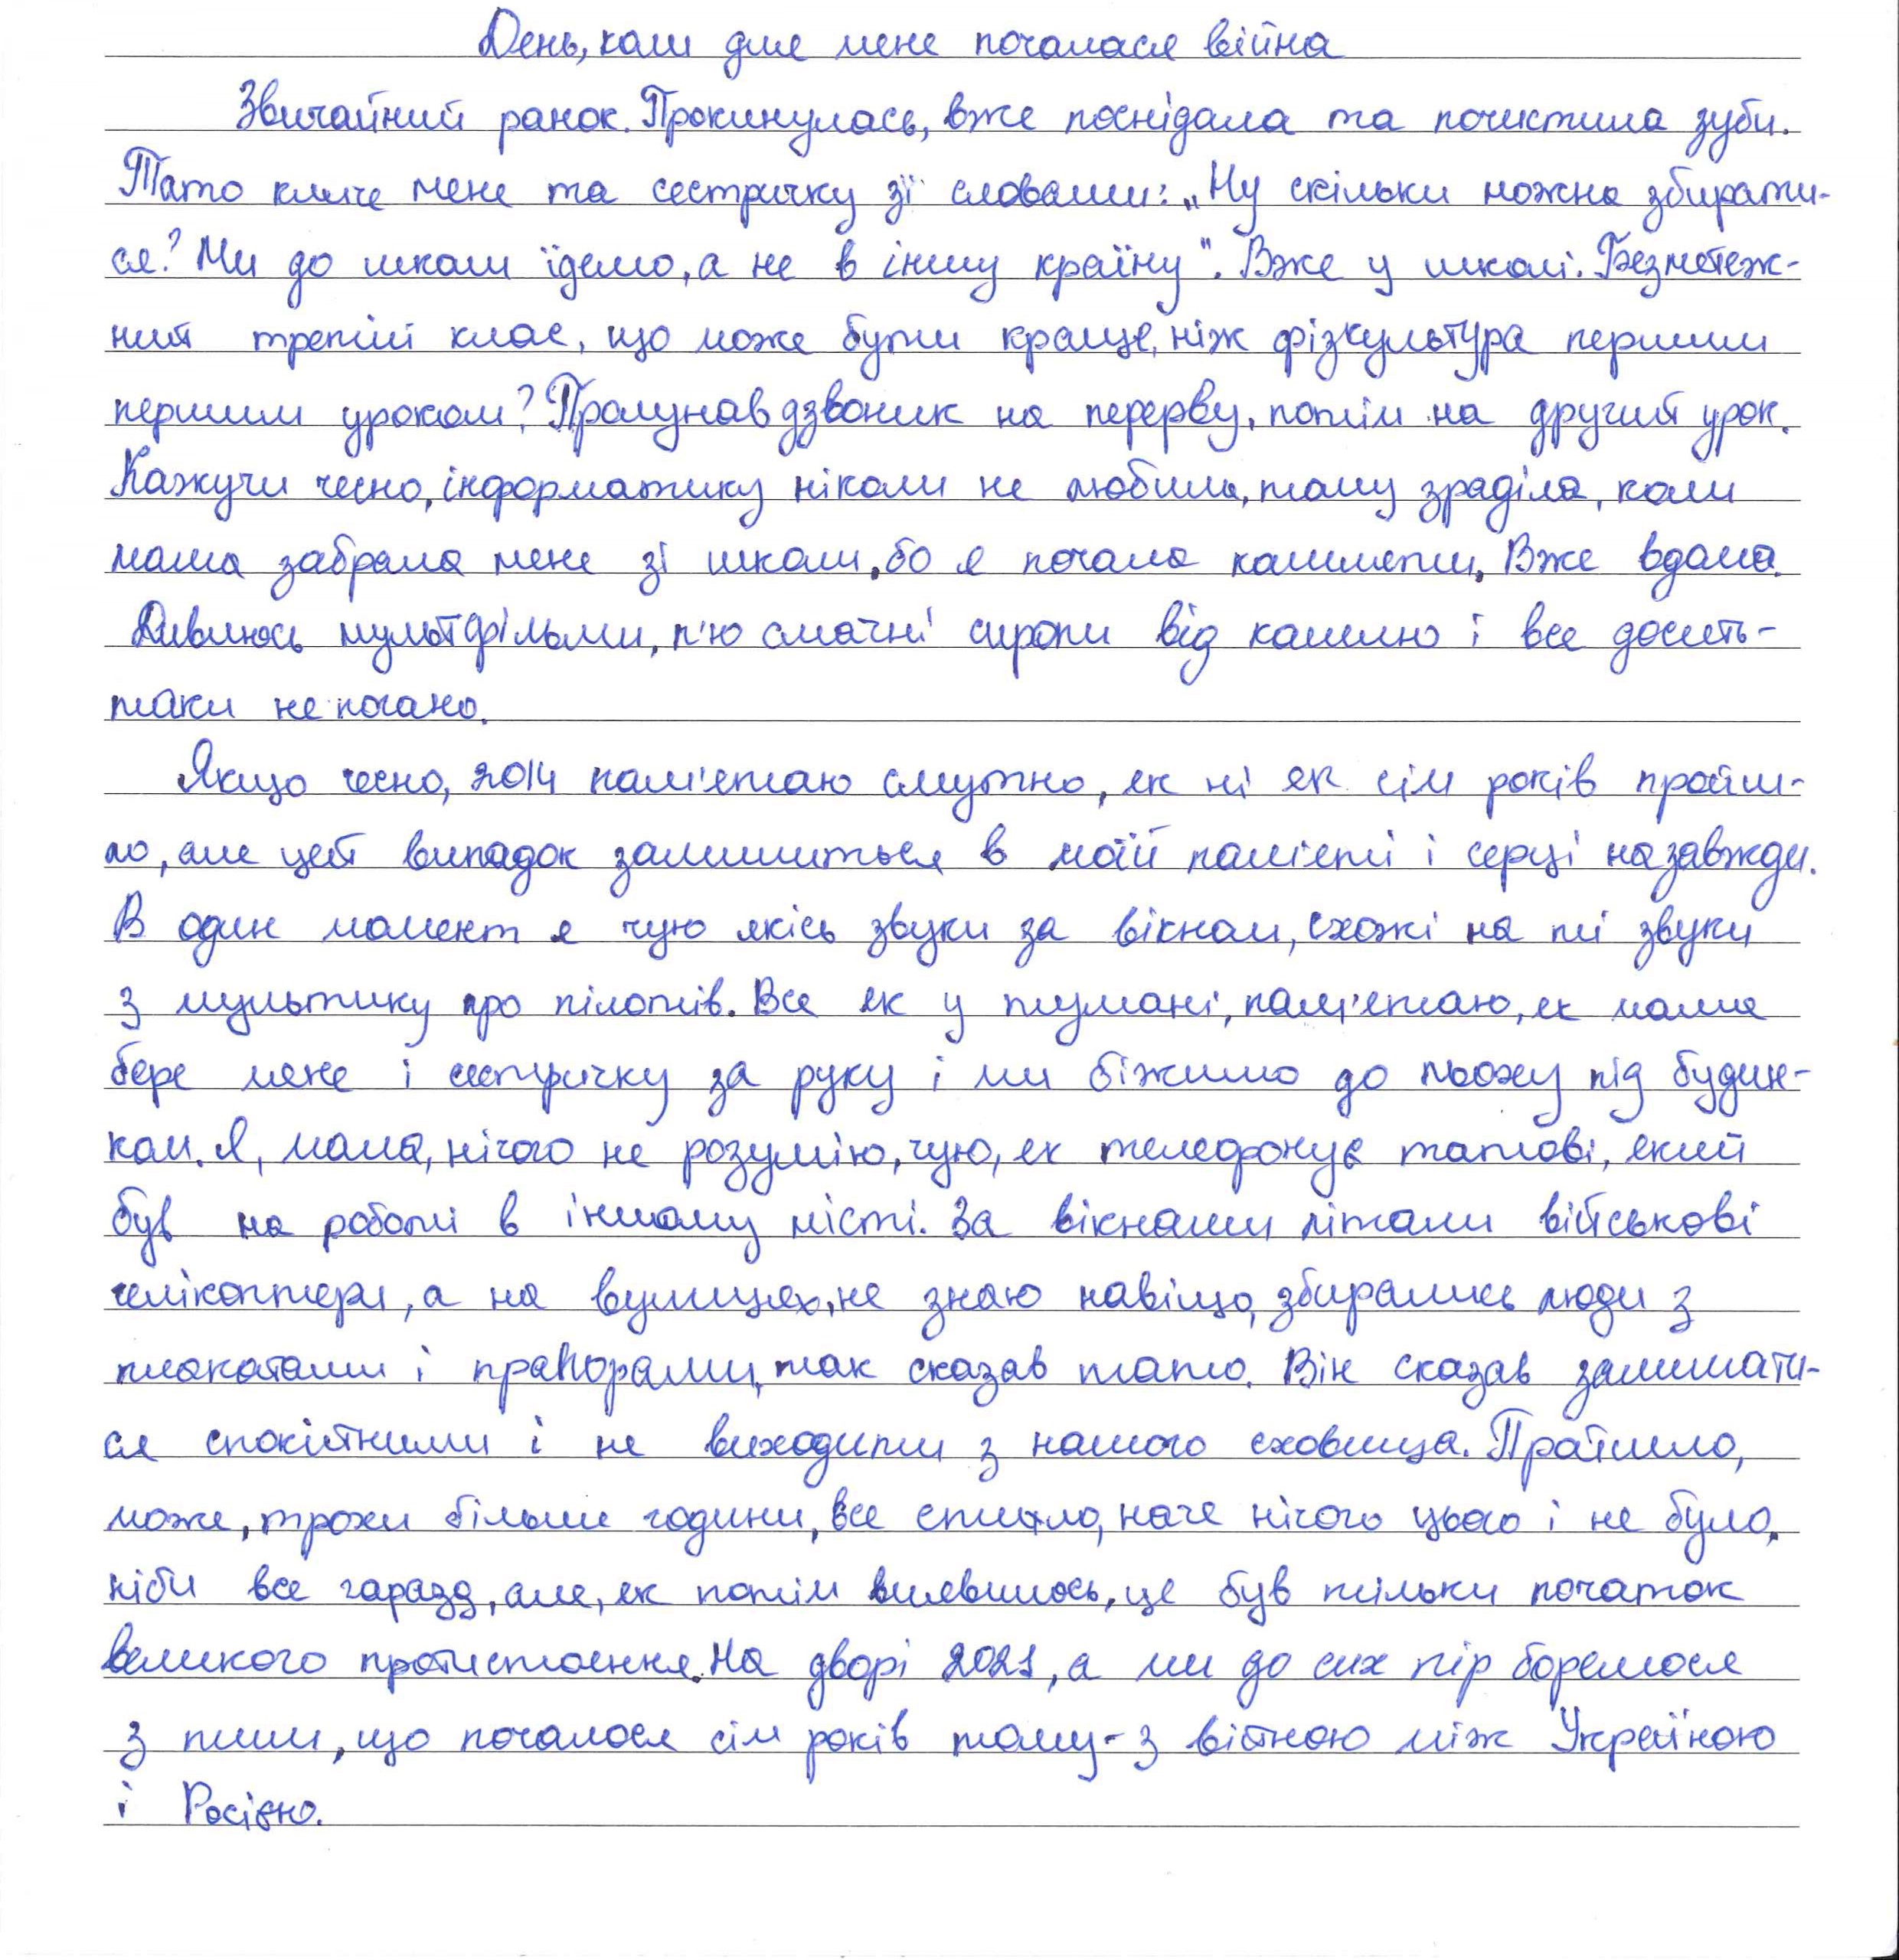 День, коли для мене почалася війна
Звичайний ранок. Прокинулась, вже поснідала та почистила зуби.
Тато кличе мене та сестричку зі словами: „Ну скільки можна збирати-
ся? Ми до школи їдемо, а не в іншу країну". Вже у школі. Безметеж-
ний третій клас, що може бути краще, ніж фізкультура першим
першим уроком? Пролунав дзвоник на перерву, потім на другий урок.
Кажучи чесно, інформатику ніколи не любила, тому зраділа, коли
мама забрала мене зі школи, бо я почала кашляти. Вже вдома.
Дивлюсь мультфільми, п'ю смачні сиропи від кашлю і все досить-
таки непогано.
Якщо чесно, 2014 пам'ятаю смутно, як ні як сім років пройш-
ло, але цей випадок залишиться в моїй пам'яті і серці назавжди.
В один момент я чую якісь звуки за вікном, схожі на ті звуки
з мультику про пілотів. Все як у тумані, пам'ятаю, як мама
бере мене і сестричку за руку і ми біжимо до льоху під будин-
ком. Я, мала, нічого не розумію, чую, як телефонує татові, який
був на роботі в іншому місті. За вікнами літали військові
гелікоптери, а на вулицях, не знаю навіщо, збирались люди з
плакатами і прапорами, так сказав тато. Він сказав залишати-
ся спокійними і не виходити з нашого сховища. Пройшло,
може, трохи більше години, все стихло, наче нічого цього і не було,
ніби все гаразд, але, як потім виявилось, це був тільки початок
великого протистояння. На дворі 2021, а ми до сих пір боремося
з тим, що почалося сім років тому - з війною між Україною
і Росією.